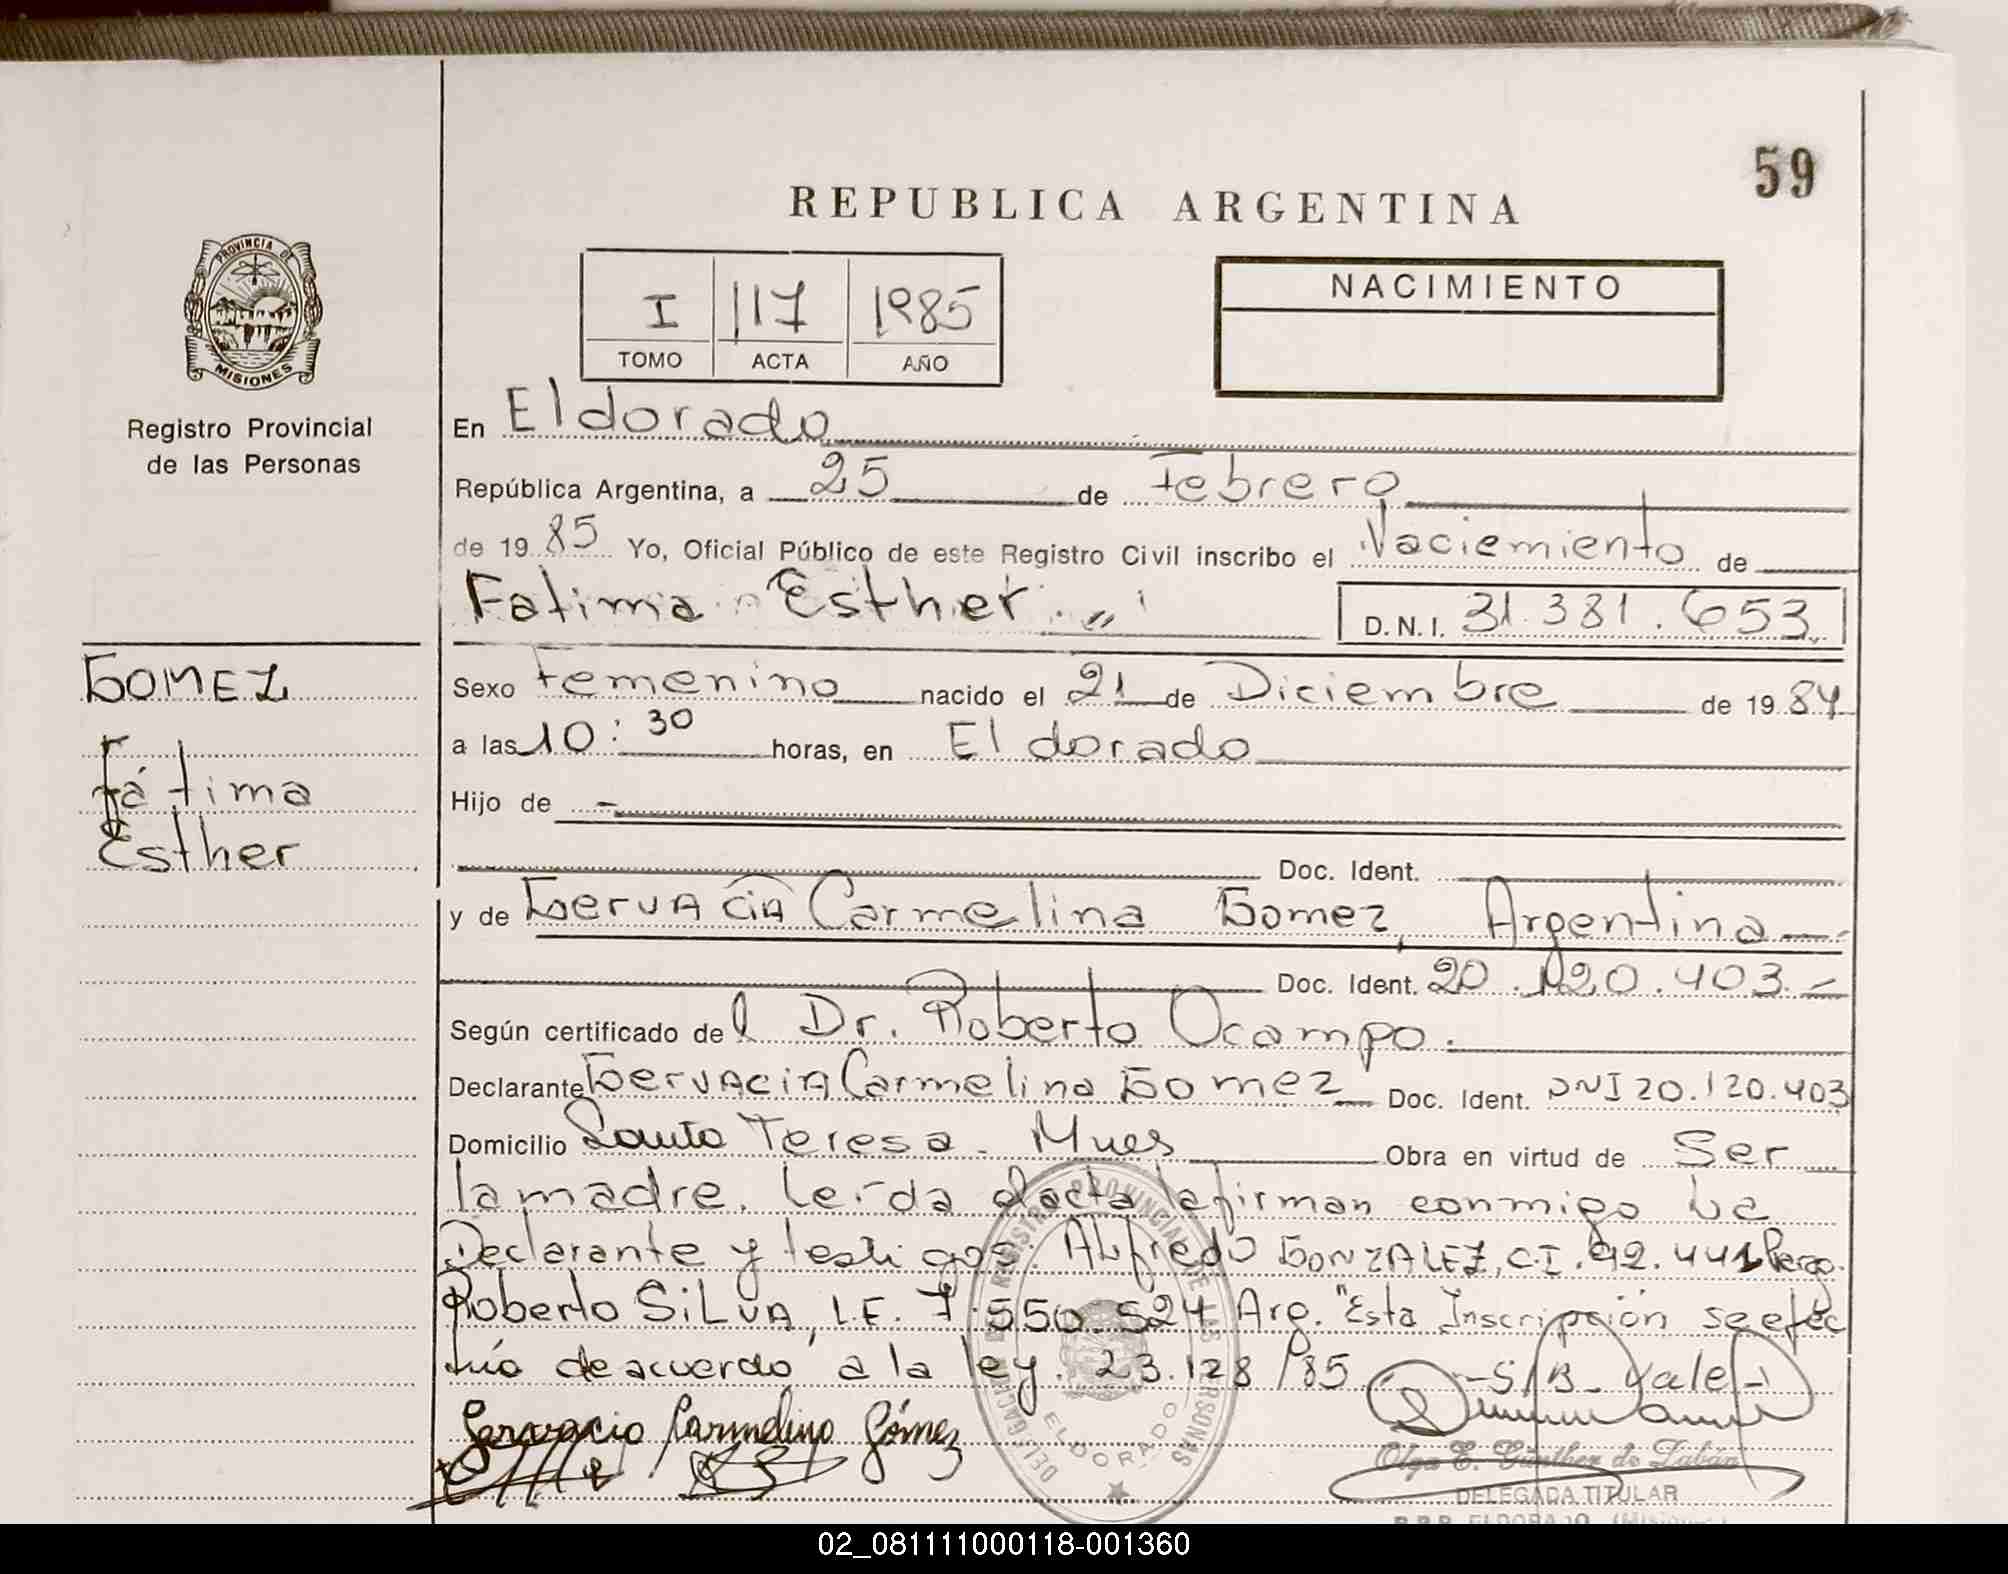 59
REPUBLICA ARGENTINA
PROVINCIA DE
MISIONES
Registro Provincial
de las Personas
I 117 1985
TOMO ACTA AÑO
NACIMIENTO
En Eldorado
República Argentina, a 25 de Febrero
de 1985 Yo, Oficial Público de este Registro Civil inscribo el Naciemiento de
Fatima Esther
D.N.I. 31.381.653
GOMEZ
Fátima
Esther
Sexo Femenino nacido el 21 de Diciembre de 1984
a las 10:30 horas, en Eldorado
Hijo de -
Doc. Ident.
y de Gervacia Carmelina Gomez, Argentina
Doc. Ident. 20.120.403.-
Según certificado del Dr. Roberto Ocampo.
Declarante Gervacia Carmelina Gomez Doc. Ident. DNI 20.120.403
Domicilio Santa Teresa - Mnes Obra en virtud de Ser
la madre. Leída el acta la firman conmigo la
Declarante y testigos: Alfredo GONZALEZ, C.I. 92.441
Roberto SILVA, L.E. 7.550.524 Arg. "Esta Inscripción se efec
tuó de acuerdo a la ley. 23.128/85 -S/B- Vale-
Gervacia Carmelina Gómez
DELEGACION DE REGISTRO PROVINCIAL DE LAS PERSONAS
ELDORADO
Olga E. Günther de Zabán
DELEGADA TITULAR
R.P.P. ELDORADO (Misiones)
02_081111000118-001360